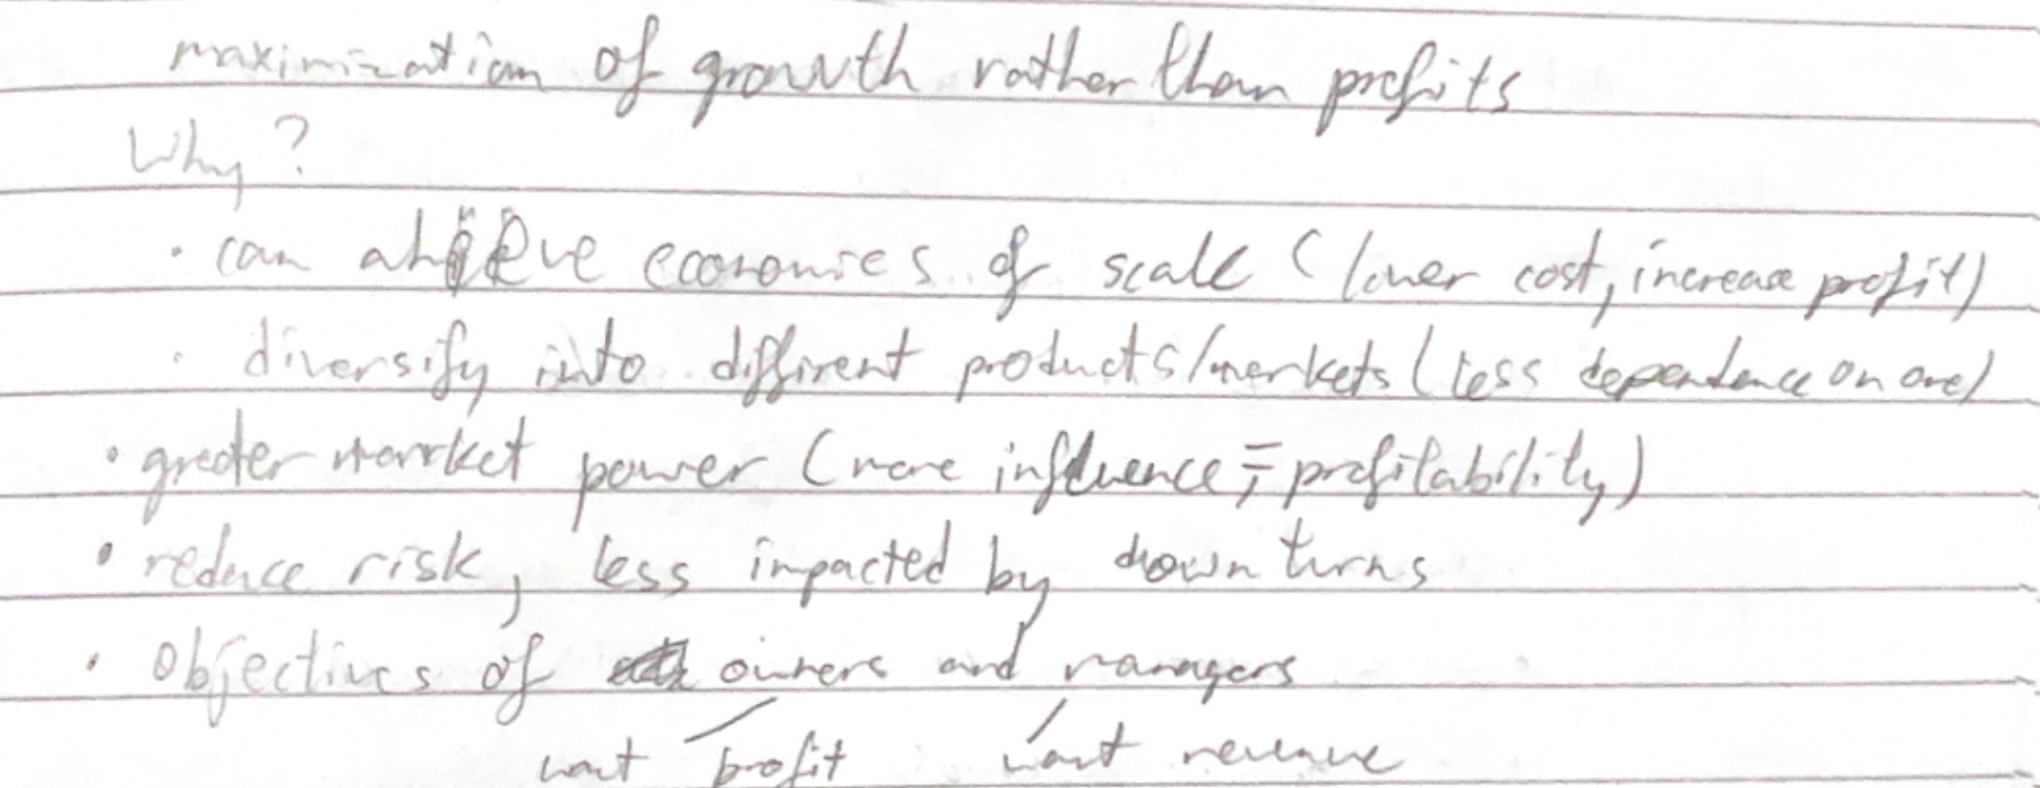 maximization of growth rather than profits
Why?
· can ahieve economies of scale (lower cost, increase profit)
· diversify into different products/markets (less dependence on one)
· greater market power (more influence, = profitability)
· reduce risk, less impacted by downturns
· objectives of owners and managers
want profit want revenue